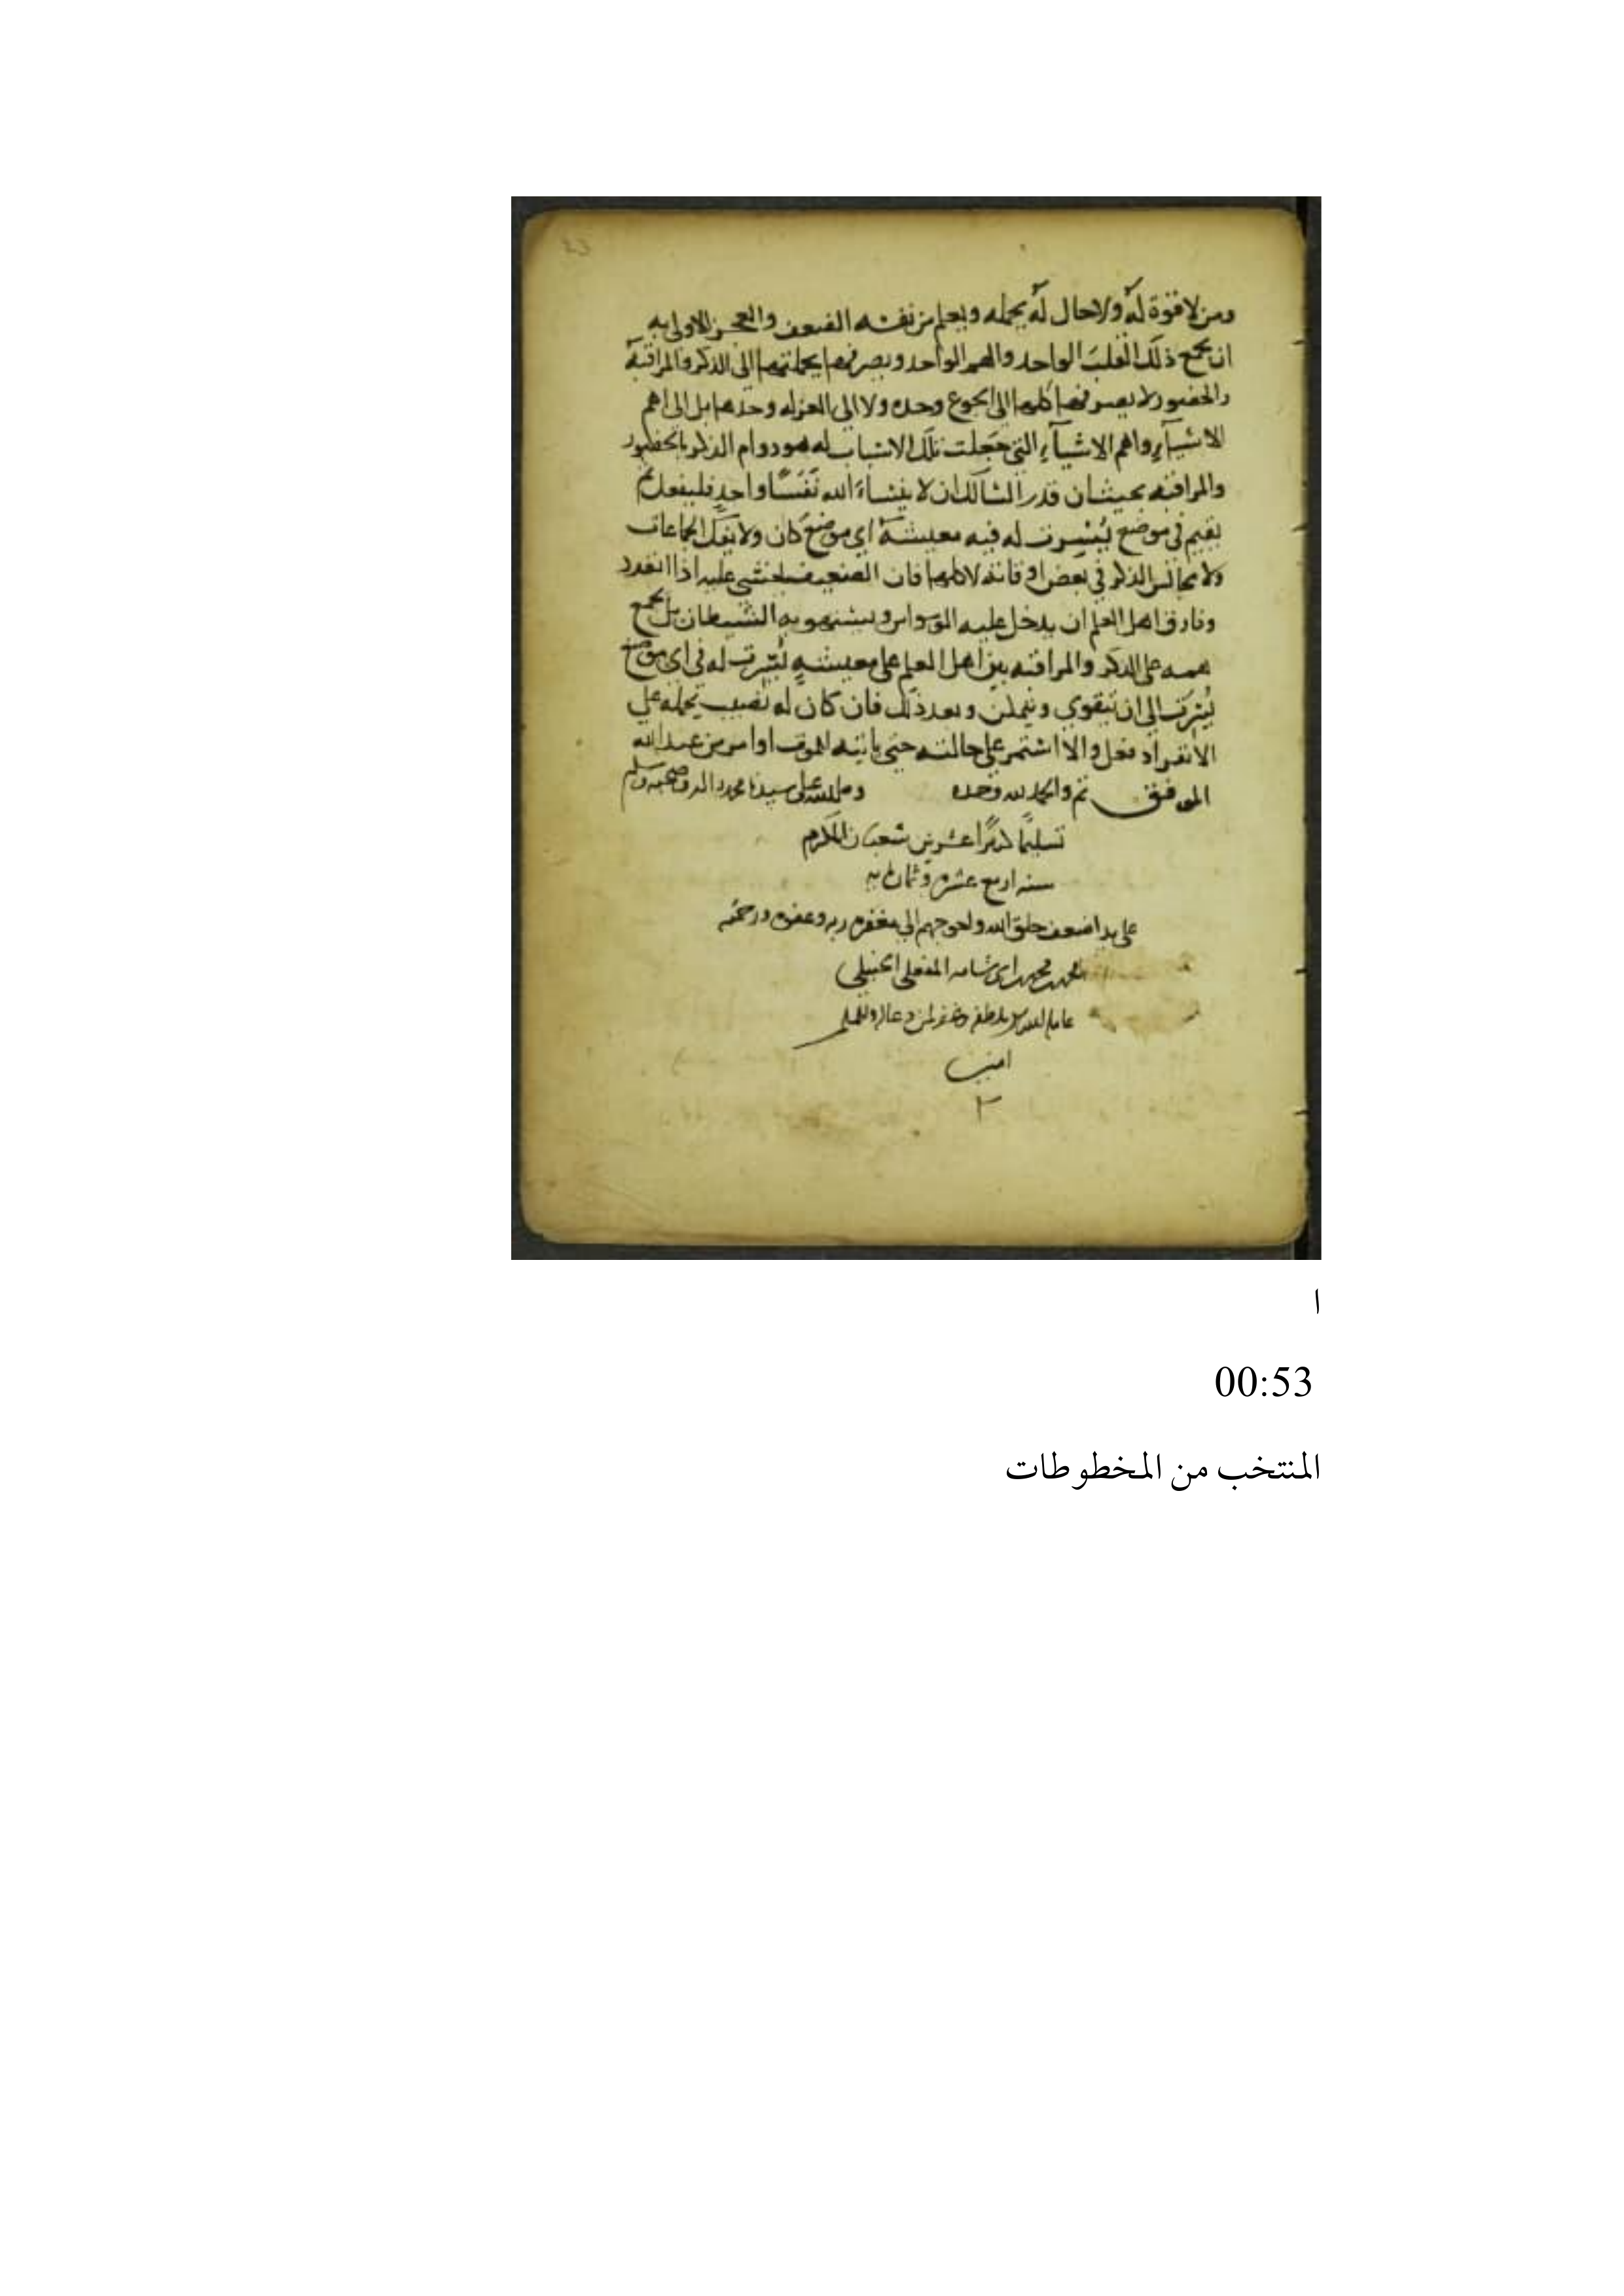 ومن لا قوة له ولا حال له يحمله ويعلم من نفسه الضعف والعجز الاولى به
ان يجمع ذلك القلب الواحد والهم الواحد ويصرفهما بجملتهما الى الذكر والمراقبة
والحضور لا يصرفهما كلهما الى الجوع وحده ولا الى العزله وحدها بل الى اهم
الاشياء واهم الاشياء التي جعلت تلك الاسباب له هو دوام الذكر بالحضور
والمراقبه بحيث ان قدر السالك ان لا ينسا الله نفسا واحد فليفعل ثم
يقيم في موضع تيسرت له فيه معيشته اي موضع كان ولا الجماعات
ولا مجالس الذكر في بعض اوقاته لا كلها فان الضعيف يخشى عليه اذا انفرد
وفارق اهل العلم ان يدخل عليه الوسواس ويستهويه الشيطان بل يجمع
همه على الذكر والمراقبه بين اهل العلم على معيشته تيسرت له في اي موضع
تيسرت الى ان يتقوى ويتمكن وبعد ذلك فان كان له نصيب يحمله على
الانفراد فعل والا استمر على حالته حتى ياتيه الموت او امر من عند الله
الموفق تم والحمد لله وحده وصلى الله على سيدنا محمد واله وصحبه وسلم
تسليما كثيرا عشرين شعبان المكرم
سنه اربع عشره وثمان مايه
على يد اضعف خلق الله واحوجهم الى مغفرة ربه وعفوه ورحمته
محمد محمد شامه الحنبلي
عامله الله بلطفه وغفر لمن دعا له وللمسلمين
امين
ا
00:53
المنتخب من المخطوطات